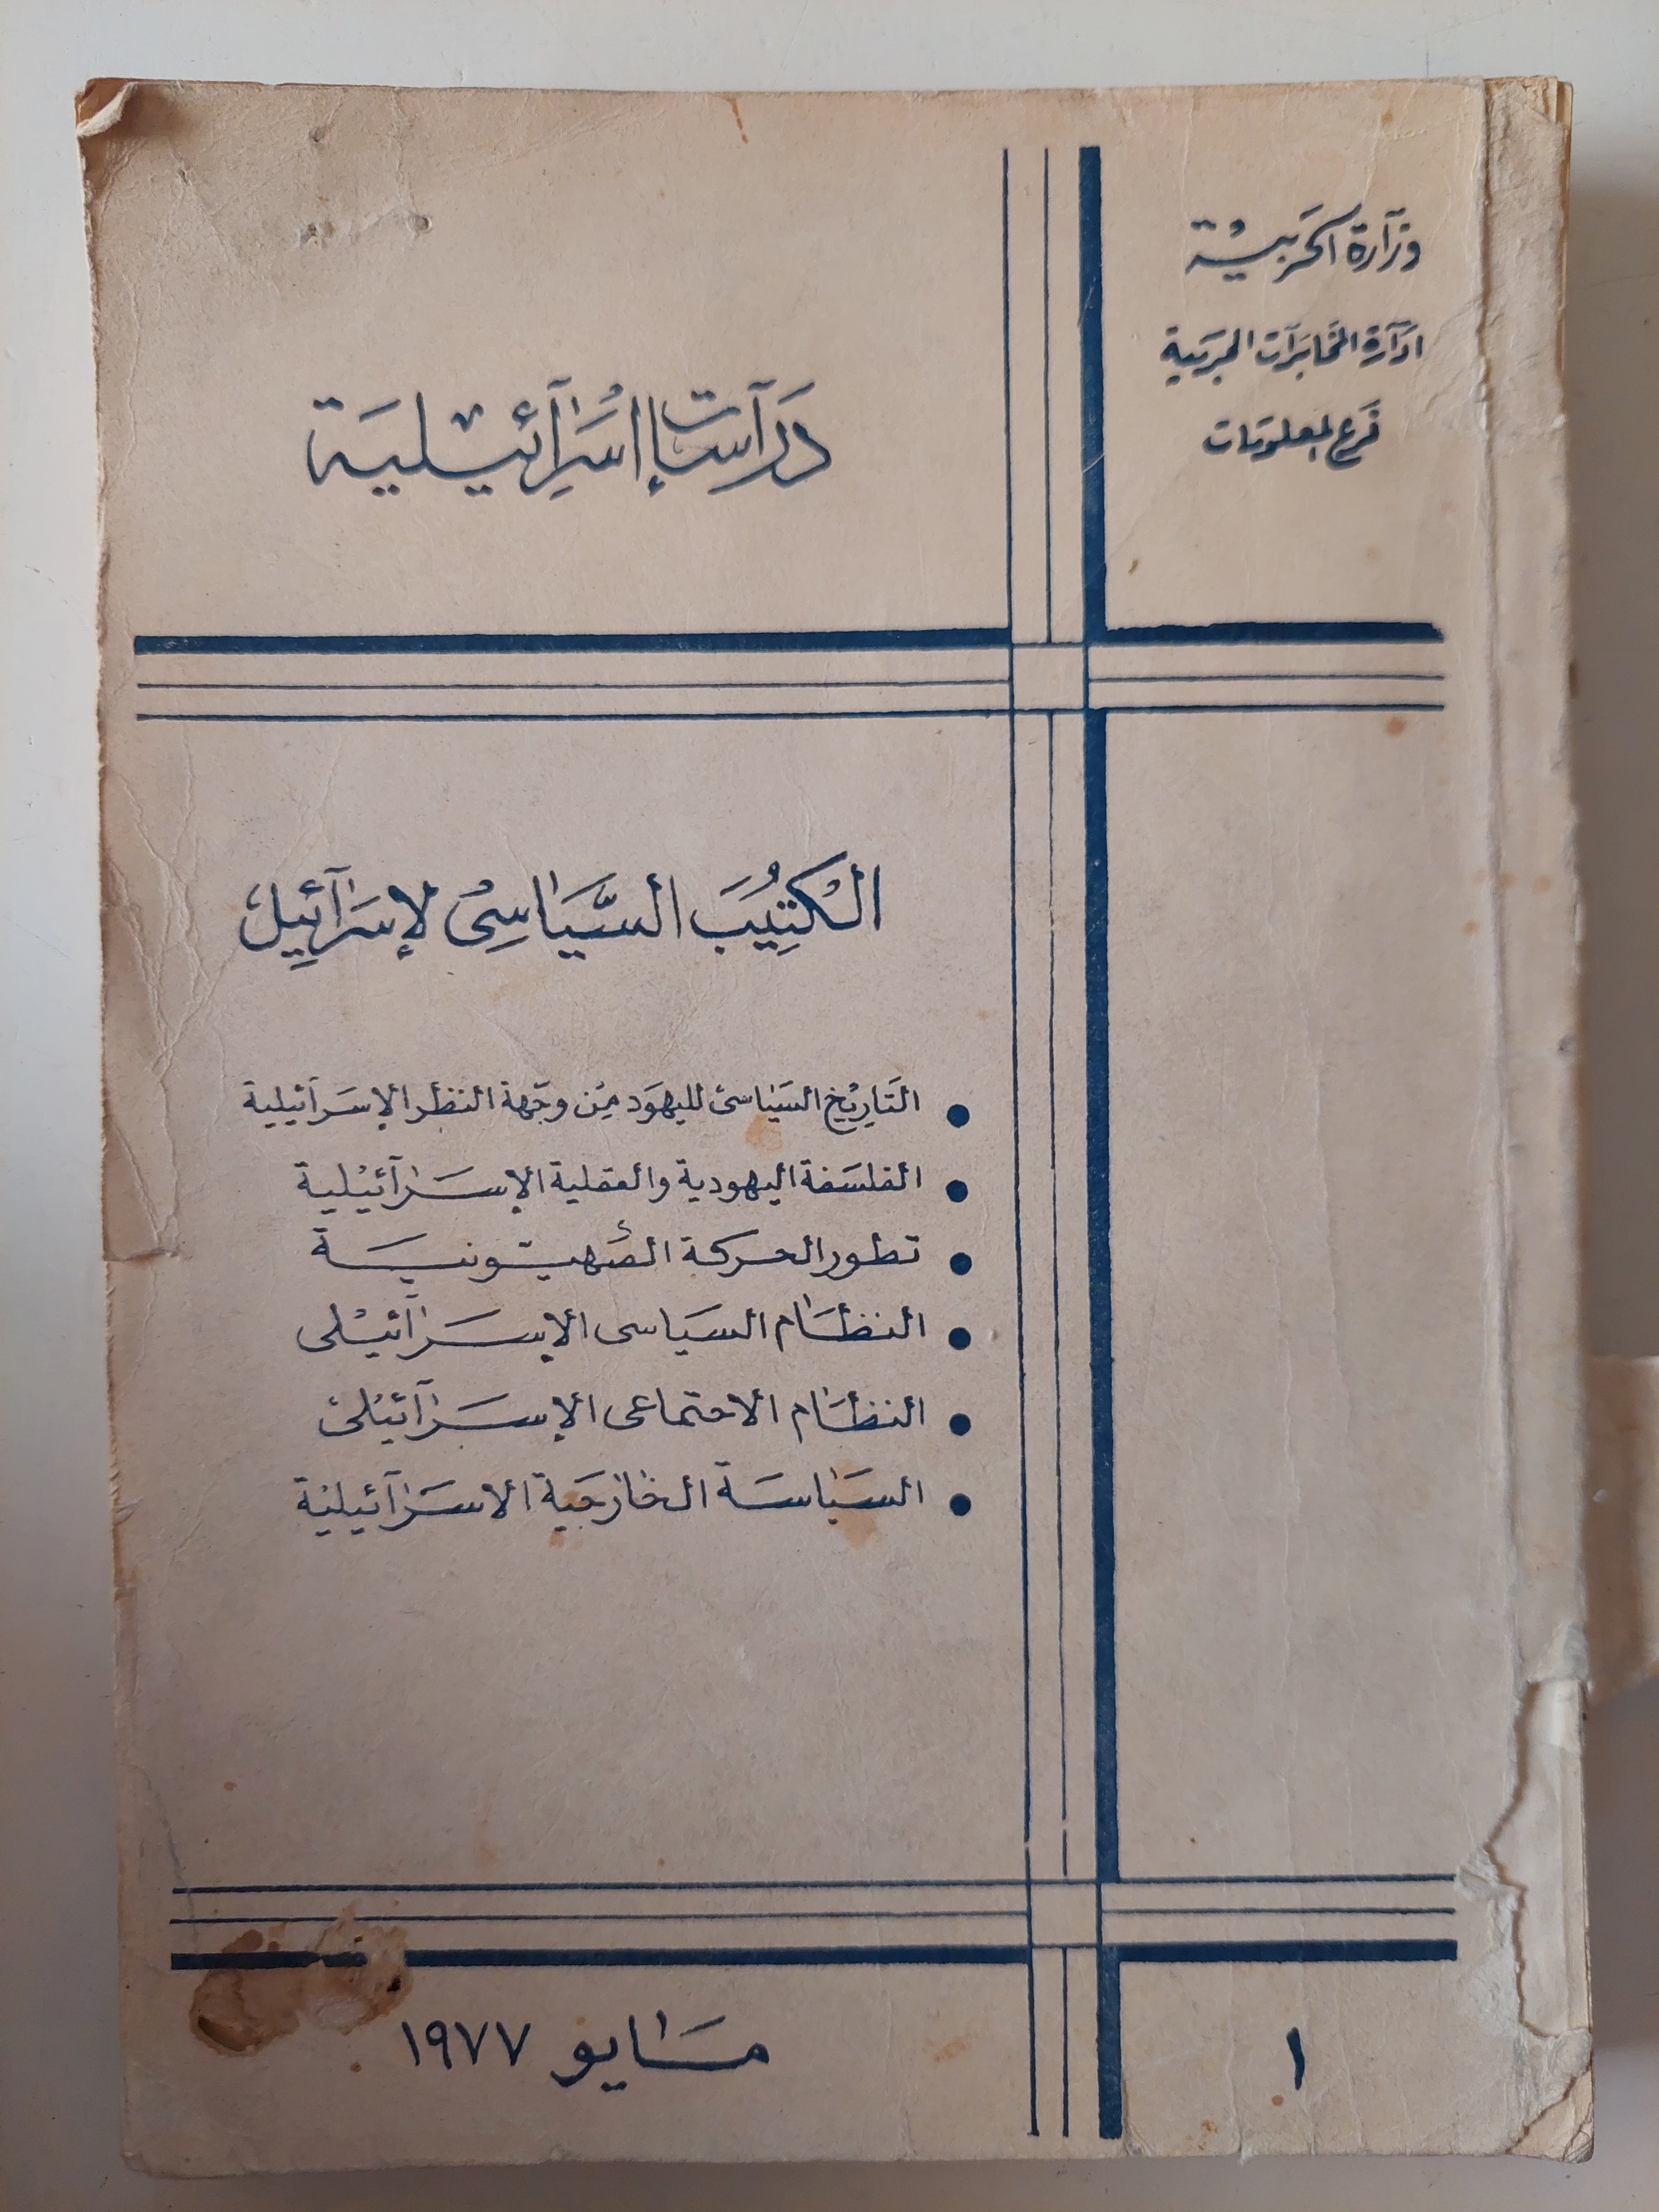 وزارة الحربية
ادارة المخابرات الحربية
فرع المعلومات
دراسات إسرائيلية
الكتيب السياسى لإسرائيل
● التاريخ السياسى لليهود من وجهة النظر الإسرائيلية
● الفلسفة اليهودية والعقلية الإسرائيلية
● تطور الحركة الصهيونية
● النظام السياسى الإسرائيلى
● النظام الاجتماعى الإسرائيلى
● السياسة الخارجية الاسرائيلية
١
مايو ١٩٧٧